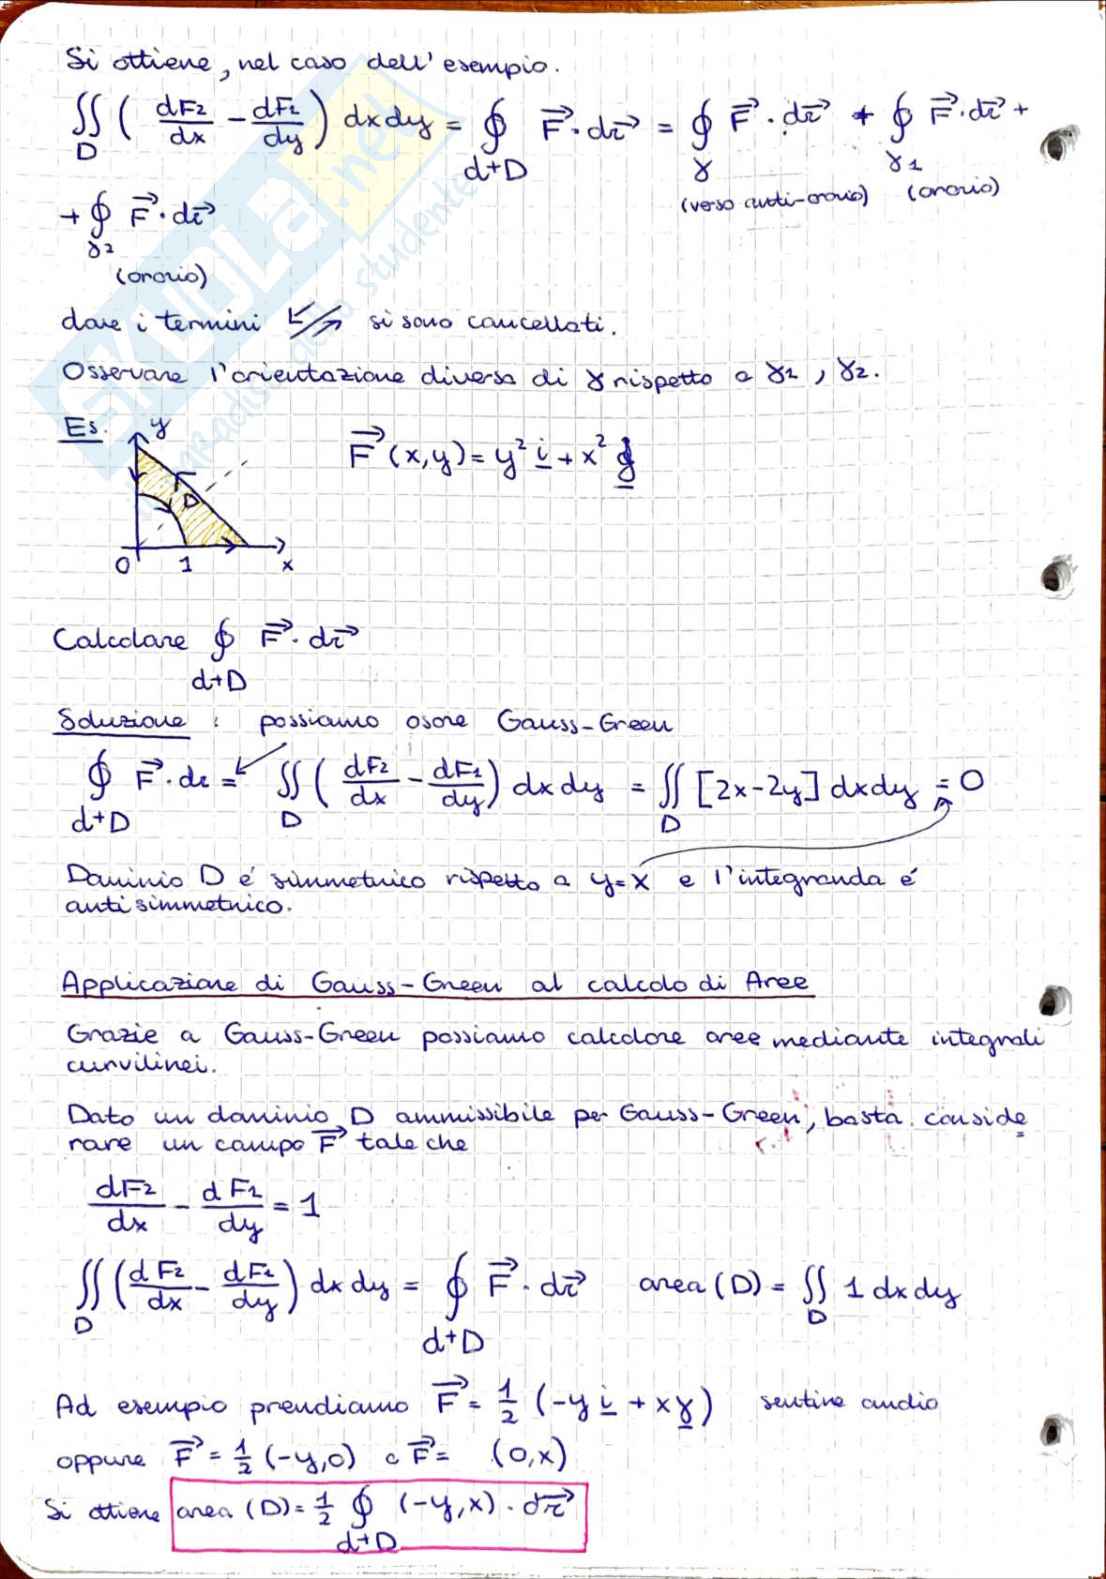 Si ottiene, nel caso dell'esempio.
∬_D ( dF2/dx - dF1/dy ) dxdy = ∮_d+D F⃗·dr⃗ = ∮_γ F⃗·dr⃗ + ∮_γ1 F⃗·dr⃗ +
(verso anti-orario) (orario)
+ ∮_γ2 F⃗·dr⃗
(orario)
dove i termini ⇙⇗ si sono cancellati.
Osservare l'orientazione diversa di γ rispetto a γ1, γ2.
Es. y
F⃗(x,y) = y² i + x² j
D
0 1 x
Calcolare ∮_d+D F⃗·dr⃗
Soluzione : possiamo osare Gauss-Green
∮_d+D F⃗·dr = ∬_D ( dF2/dx - dF1/dy ) dxdy = ∬_D [2x-2y] dxdy = 0
Dominio D é simmetrico rispetto a y=x e l'integranda é
antisimmetrico.
Applicazione di Gauss-Green al calcolo di Aree
Grazie a Gauss-Green possiamo calcolare aree mediante integrali
curvilinei.
Dato un dominio D ammissibile per Gauss-Green, basta conside
rare un campo F⃗ tale che
dF2/dx - dF1/dy = 1
∬_D ( dF2/dx - dF1/dy ) dxdy = ∮_d+D F⃗·dr⃗ area (D) = ∬_D 1 dxdy
Ad esempio prendiamo F⃗ = 1/2 (-y i + x j) sentire audio
oppure F⃗ = 1/2 (-y,0) o F⃗ = (0,x)
Si ottiene area (D) = 1/2 ∮_d+D (-y,x)·dr⃗
SKUOLA.net